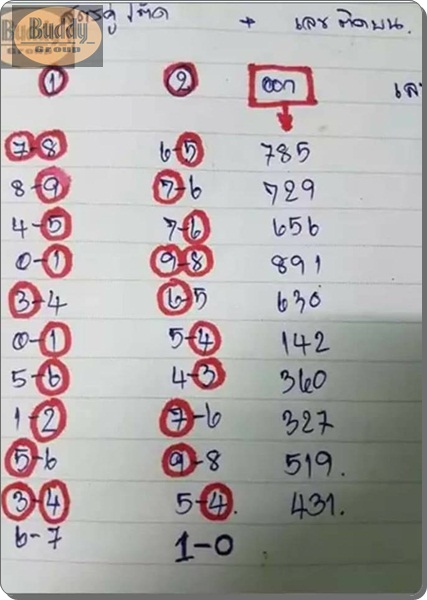 Buddy
Group
สูตรคู่ เด็ด + เลข ติดบน.
① ② ออก เล
7-8 6-5 785
8-9 7-6 729
4-5 7-6 656
0-1 9-8 891
3-4 6-5 630
0-1 5-4 142
5-6 4-3 360
1-2 7-6 327
5-6 9-8 519.
3-4 5-4. 431.
6-7 1-0